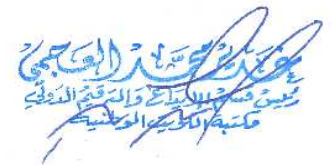 محمد العجمي
رئيس قسم الإيداع والترقيم الدولي
مكتبة الكويت الوطنية